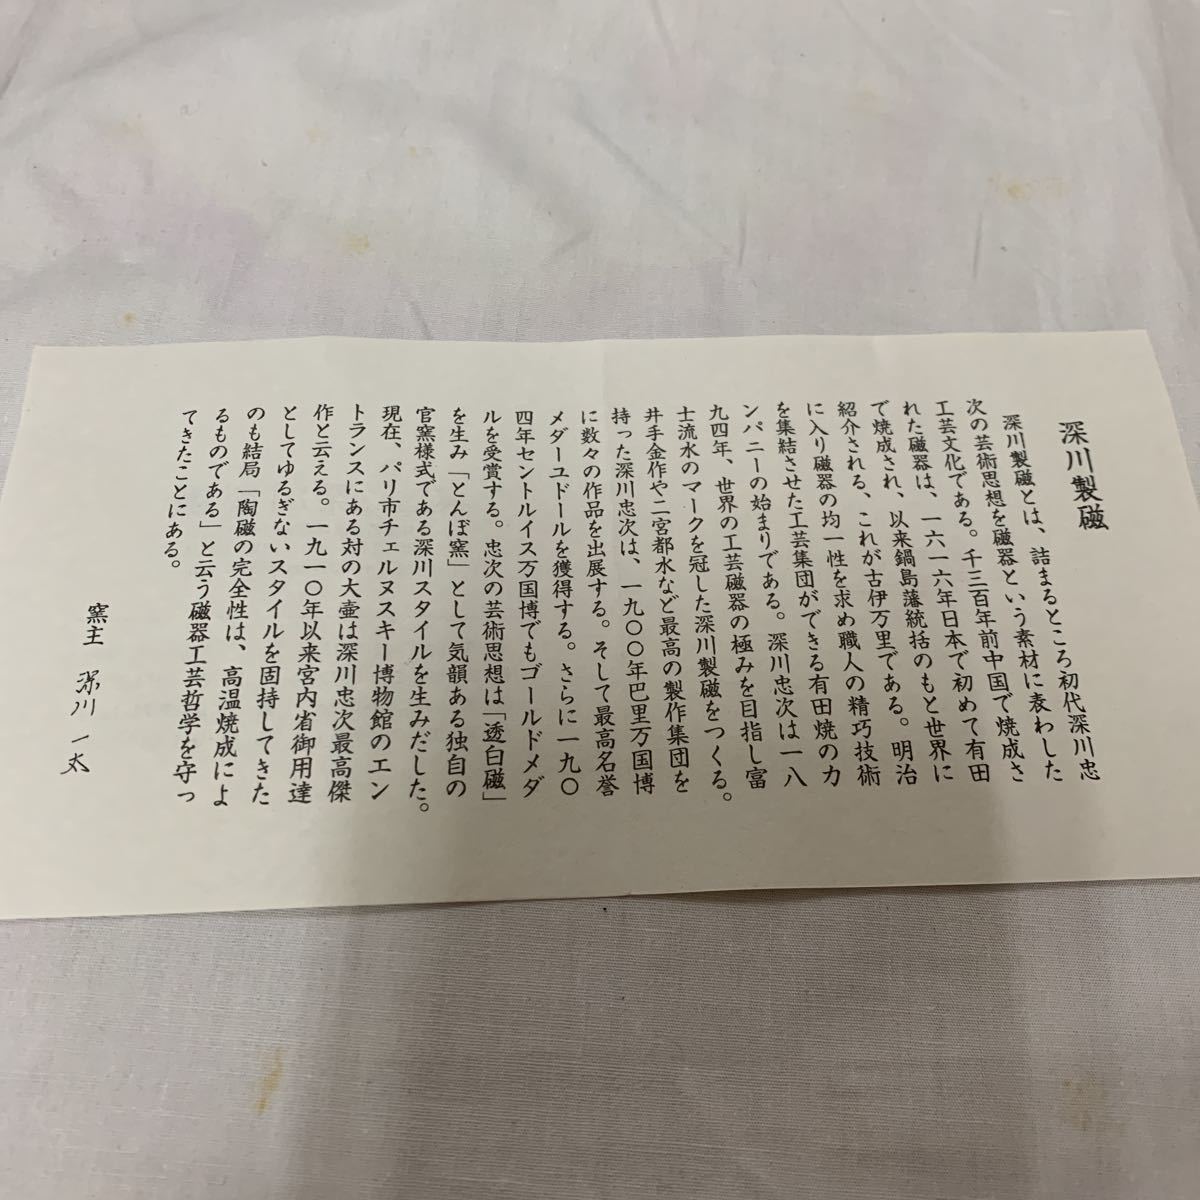 深川製磁
深川製磁とは、詰まるところ初代深川忠
次の芸術思想を磁器という素材に表わした
工芸文化である。千三百年前中国で焼成さ
れた磁器は、一六一六年日本で初めて有田
で焼成され、以来鍋島藩統括のもと世界に
紹介される、これが古伊万里である。明治
に入り磁器の均一性を求め職人の精巧技術
を集結させた工芸集団ができる有田焼のカ
ンパニーの始まりである。深川忠次は一八
九四年、世界の工芸磁器の極みを目指し富
士流水のマークを冠した深川製磁をつくる。
井手金作や二宮都水など最高の製作集団を
持った深川忠次は、一九〇〇年巴里万国博
に数々の作品を出展する。そして最高名誉
メダーユドールを獲得する。さらに一九〇
四年セントルイス万国博でもゴールドメダ
ルを受賞する。忠次の芸術思想は「透白磁」
を生み「とんぼ窯」として気韻ある独自の
官窯様式である深川スタイルを生みだした。
現在、パリ市チェルヌスキー博物館のエン
トランスにある対の大壷は深川忠次最高傑
作と云える。一九一〇年以来宮内省御用達
としてゆるぎないスタイルを固持してきた
のも結局「陶磁の完全性は、高温焼成によ
るものである」と云う磁器工芸哲学を守っ
てきたことにある。
窯主 深川一太